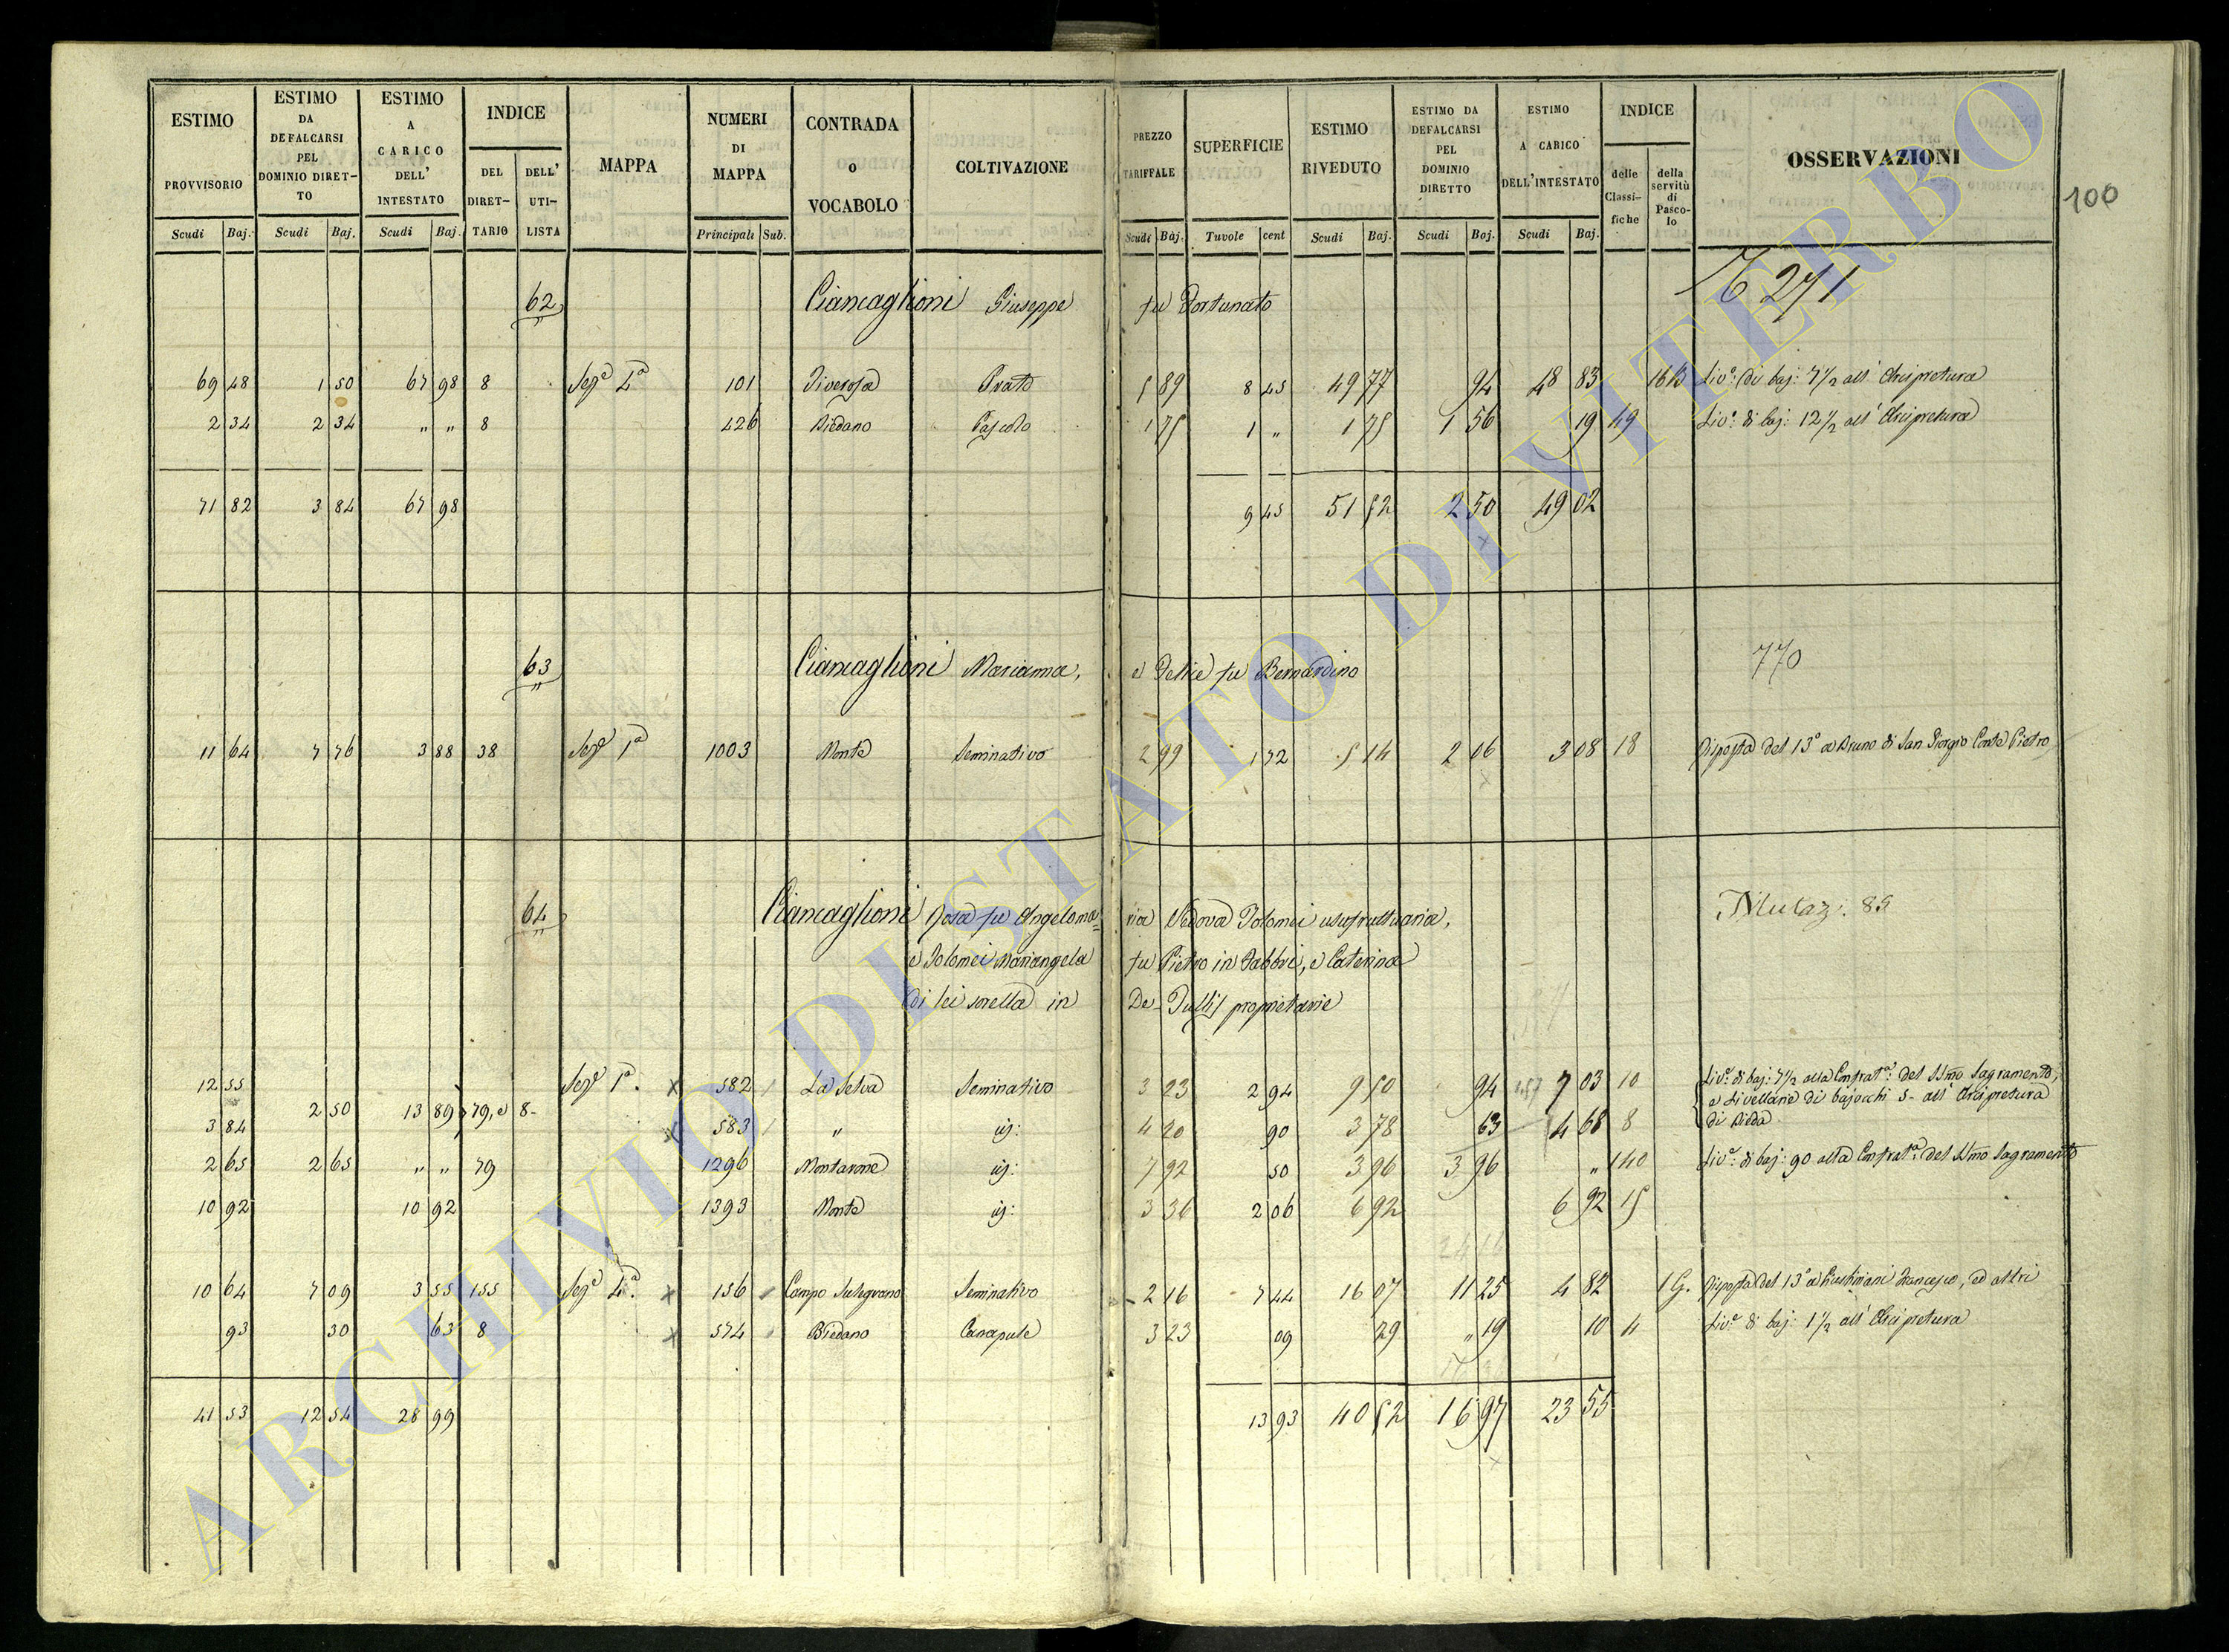 ESTIMO PROVVISORIO Scudi Baj. | ESTIMO DA DEFALCARSI PEL DOMINIO DIRETTO Scudi Baj. | ESTIMO A CARICO DELL' INTESTATO Scudi Baj. | INDICE DEL DIRET-TARIO | DELL' UTI-LISTA | MAPPA | NUMERI DI MAPPA Principali Sub. | CONTRADA o VOCABOLO | COLTIVAZIONE | PREZZO TARIFFALE Scudi Baj. | SUPERFICIE Tavole cent | ESTIMO RIVEDUTO Scudi Baj. | ESTIMO DA DEFALCARSI PEL DOMINIO DIRETTO Scudi Baj. | ESTIMO A CARICO DELL'INTESTATO Scudi Baj. | INDICE delle Classi-fiche | della servitù di Pasco-lo | OSSERVAZIONI
100
62 Ciancaglioni Giuseppe fu Fortunato 271
69 48 1 50 67 98 8 Sez.e 4a 101 Prato 5 89 8 45 49 77 94 48 83 Liv.o di baj: 7 1/2 all' Arcipretura
2 34 2 34 " " 8 426 Biedano Pascolo 1 75 1 " 1 75 1 56 19 49 Liv.o di baj: 12 1/2 all' Arcipretura
71 82 3 84 67 98 9 45 51 52 2 50 49 02
63 Ciancaglioni Marianna, e Felice fu Bernardino 770
11 64 7 76 3 88 38 Sez.e 1a 1003 Monte Seminativo 2 99 1 72 5 14 2 06 3 08 18 Risposta del 13.o a Bruno di San Giorgio Conte Pietro
64 Ciancaglioni Rosa fu Angeloma= ria Vedova Tolomei usufruttuaria, Mutaz. 89
e Tolomei Mariangela fu Pietro in Fabbri, e Caterina
di lei sorella in De-Tullis proprietarie
12 55 Sez.e 1a. x 582 La Selva Seminativo 3 23 2 94 9 50 94 7 03 10 Liv.o di baj: 7 1/2 alla Confrat.a del SSmo Sagramento,
2 50 13 89 79, e 8- e Livellarie di bajocchi 5- all' Arcipretura
3 84 x 583 " id: 4 20 90 3 78 63 4 68 8 di Bieda
2 65 2 65 " " 79 1296 Montarone id: 7 92 50 3 96 3 96 " 140 Liv.o di baj: 90 alla Confrat.a del SSmo Sagramento
10 92 10 92 1393 Monte id: 3 36 2 06 6 92 6 92 15
10 64 7 09 3 55 155 Sez.e 4a. x 156 Campo Seminativo 2 16 7 44 16 07 11 25 4 82 1 G. Risposta del 13.o a Giustiniani Francesco, ed altri
93 30 63 8 x 574 Biedano Canapule 3 23 09 29 " 19 10 4 Liv.o di baj: 1 1/2 all' Arcipretura
41 53 12 54 28 99 13 93 40 52 16 97 23 55
ARCHIVIO DI STATO DI VITERBO